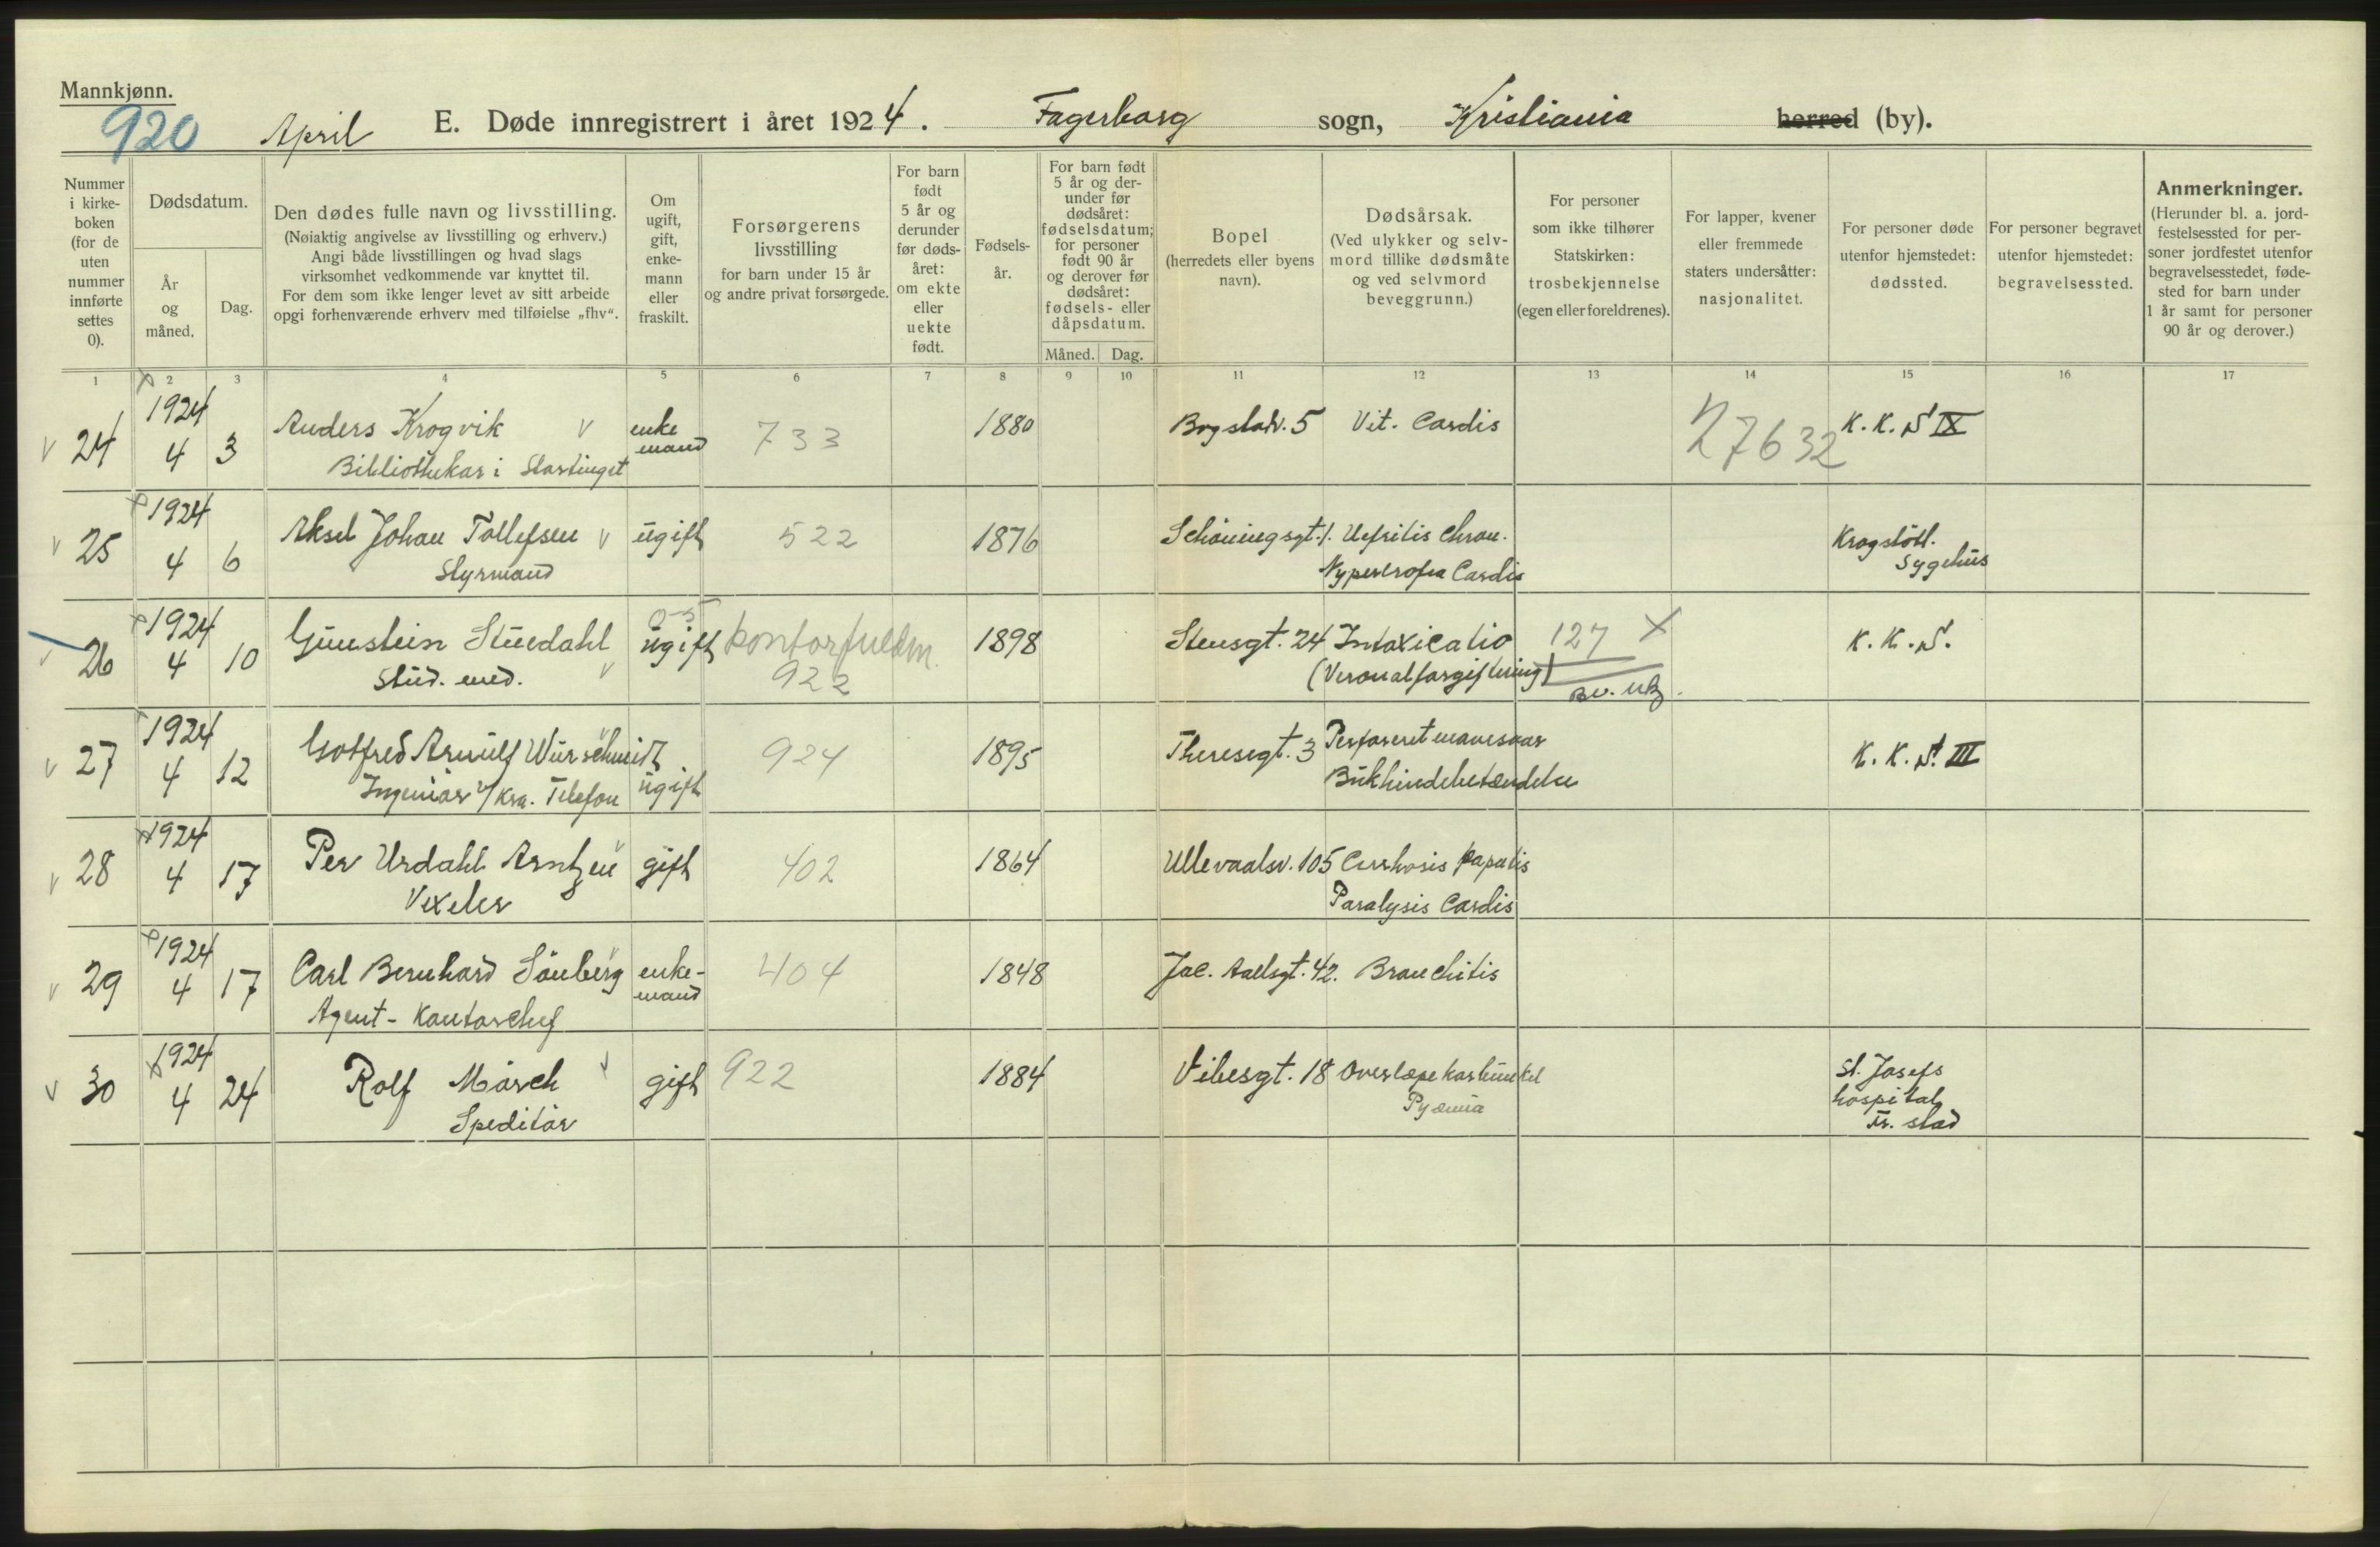 Mannkjønn.
920 April E. Døde innregistrert i året 1924. Fagerborg sogn, Kristiania herred (by).
Nummer i kirke-boken (for de uten nummer innførte settes 0).
Dødsdatum.
År og måned.
Dag.
Den dødes fulle navn og livsstilling.
(Nøiaktig angivelse av livsstilling og erhverv.)
Angi både livsstillingen og hvad slags
virksomhet vedkommende var knyttet til.
For dem som ikke lenger levet av sitt arbeide
opgi forhenværende erhverv med tilføielse „fhv“.
Om ugift, gift, enke-mann eller fraskilt.
Forsørgerens
livsstilling
for barn under 15 år
og andre privat forsørgede.
For barn født 5 år og derunder før døds-året: om ekte eller uekte født.
Fødsels-år.
For barn født 5 år og der-under før dødsåret: fødselsdatum; for personer født 90 år og derover før dødsåret: fødsels- eller dåpsdatum.
Måned. Dag.
Bopel
(herredets eller byens
navn).
Dødsårsak.
(Ved ulykker og selv-
mord tillike dødsmåte
og ved selvmord
beveggrunn.)
For personer
som ikke tilhører
Statskirken:
trosbekjennelse
(egen eller foreldrenes).
For lapper, kvener
eller fremmede
staters undersåtter:
nasjonalitet.
For personer døde
utenfor hjemstedet:
dødssted.
For personer begravet
utenfor hjemstedet:
begravelsessted.
Anmerkninger.
(Herunder bl. a. jord-
festelsessted for per-
soner jordfestet utenfor
begravelsesstedet, føde-
sted for barn under
1 år samt for personer
90 år og derover.)
1 2 3 4 5 6 7 8 9 10 11 12 13 14 15 16 17
v 24 1924 4 3 Anders Krogvik v enke mand 733 1880 Bogstadv. 5 Vit. Cordis 27632 K. K. S IX
Bibliothekar i Stortinget
v 25 1924 4 6 Aksel Johan Tollefsen v ugift 522 1876 Schöningsgt. 1. Nefritis Chron. Krogstötl.
Styrmand Hypertrofia Cordis Sygehus
v 26 1924 4 10 Gunstein Stuedahl v ugift kontorfuldm. 1898 Stensgt. 24 Intoxicatio 127 X K. K. S.
Stud. med. 922 (Veronalforgiftning)
v 27 1924 4 12 Gotfred Arnulf Würschmidt ugift 924 1895 Theresegt. 3 Perforeret mavesaar K. K. S. III
Ingeniør v/ Kra. Telefon Bukhindebetændelse
v 28 1924 4 17 Per Urdahl Arntzen v gift 402 1864 Ullevaalsv. 105 Cirrhosis hepatis
Vexeler Paralysis Cordis
v 29 1924 4 17 Carl Bernhard Sönberg v enke-mand 404 1848 Jac. Aallsgt. 42. Bronchitis
Agent - Kontorchef
v 30 1924 4 24 Rolf Mørch v gift 922 1884 Vibesgt. 18 Overlæpekarbunkel St. Josefs
Speditør Pyæmia hospital
Fr. stad